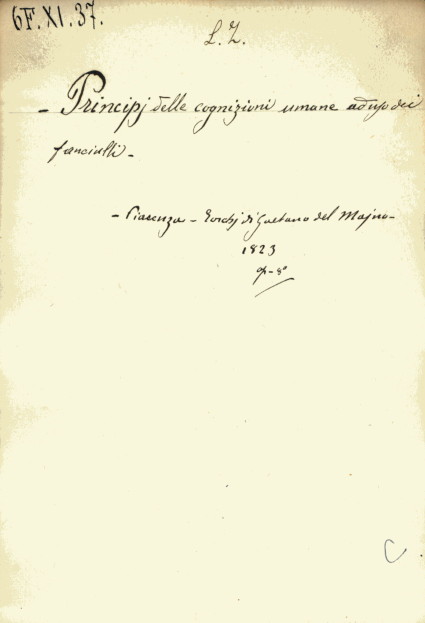 6F.XI.37.
L. Z.
- Principj delle cognizioni umane ad uso dei
fanciulli -
- Piacenza - Torchj di Gaetano del Majno -
1823
- 8°
C